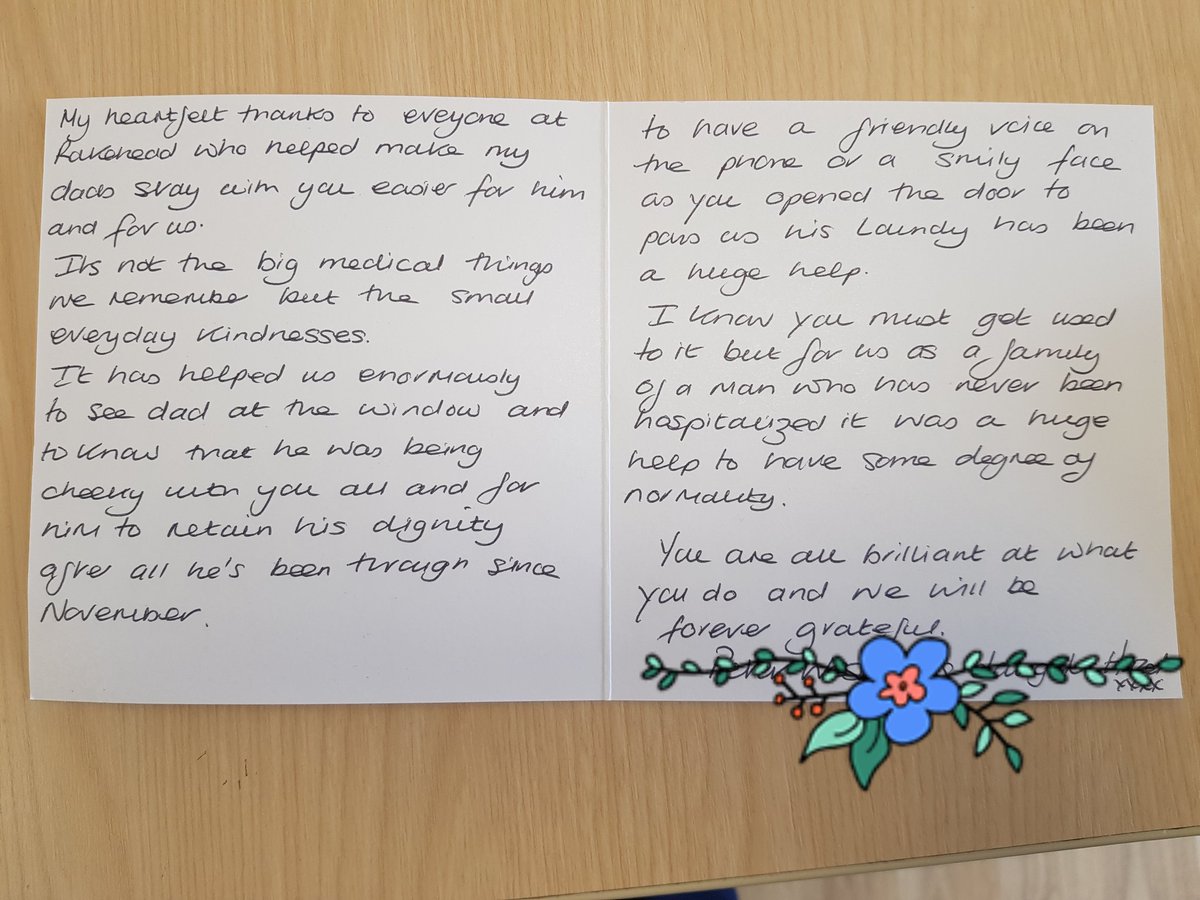 My heartfelt thanks to eveyone at
Rakehead who helped make my
dads stay with you easier for him
and for us.
Its not the big medical things
we remember but the small
everyday kindnesses.
It has helped us enormously
to see dad at the window and
to know that he was being
cheeky with you all and for
him to retain his dignity
after all he's been through since
November.
to have a friendly voice on
the phone or a smily face
as you opened the door to
pass us his Laundy has been
a huge help.
I know you must get used
to it but for us as a family
of a man who has never been
hospitalized it was a huge
help to have some degree of
normality.
You are all brilliant at what
you do and we will be
forever grateful.
xxxx